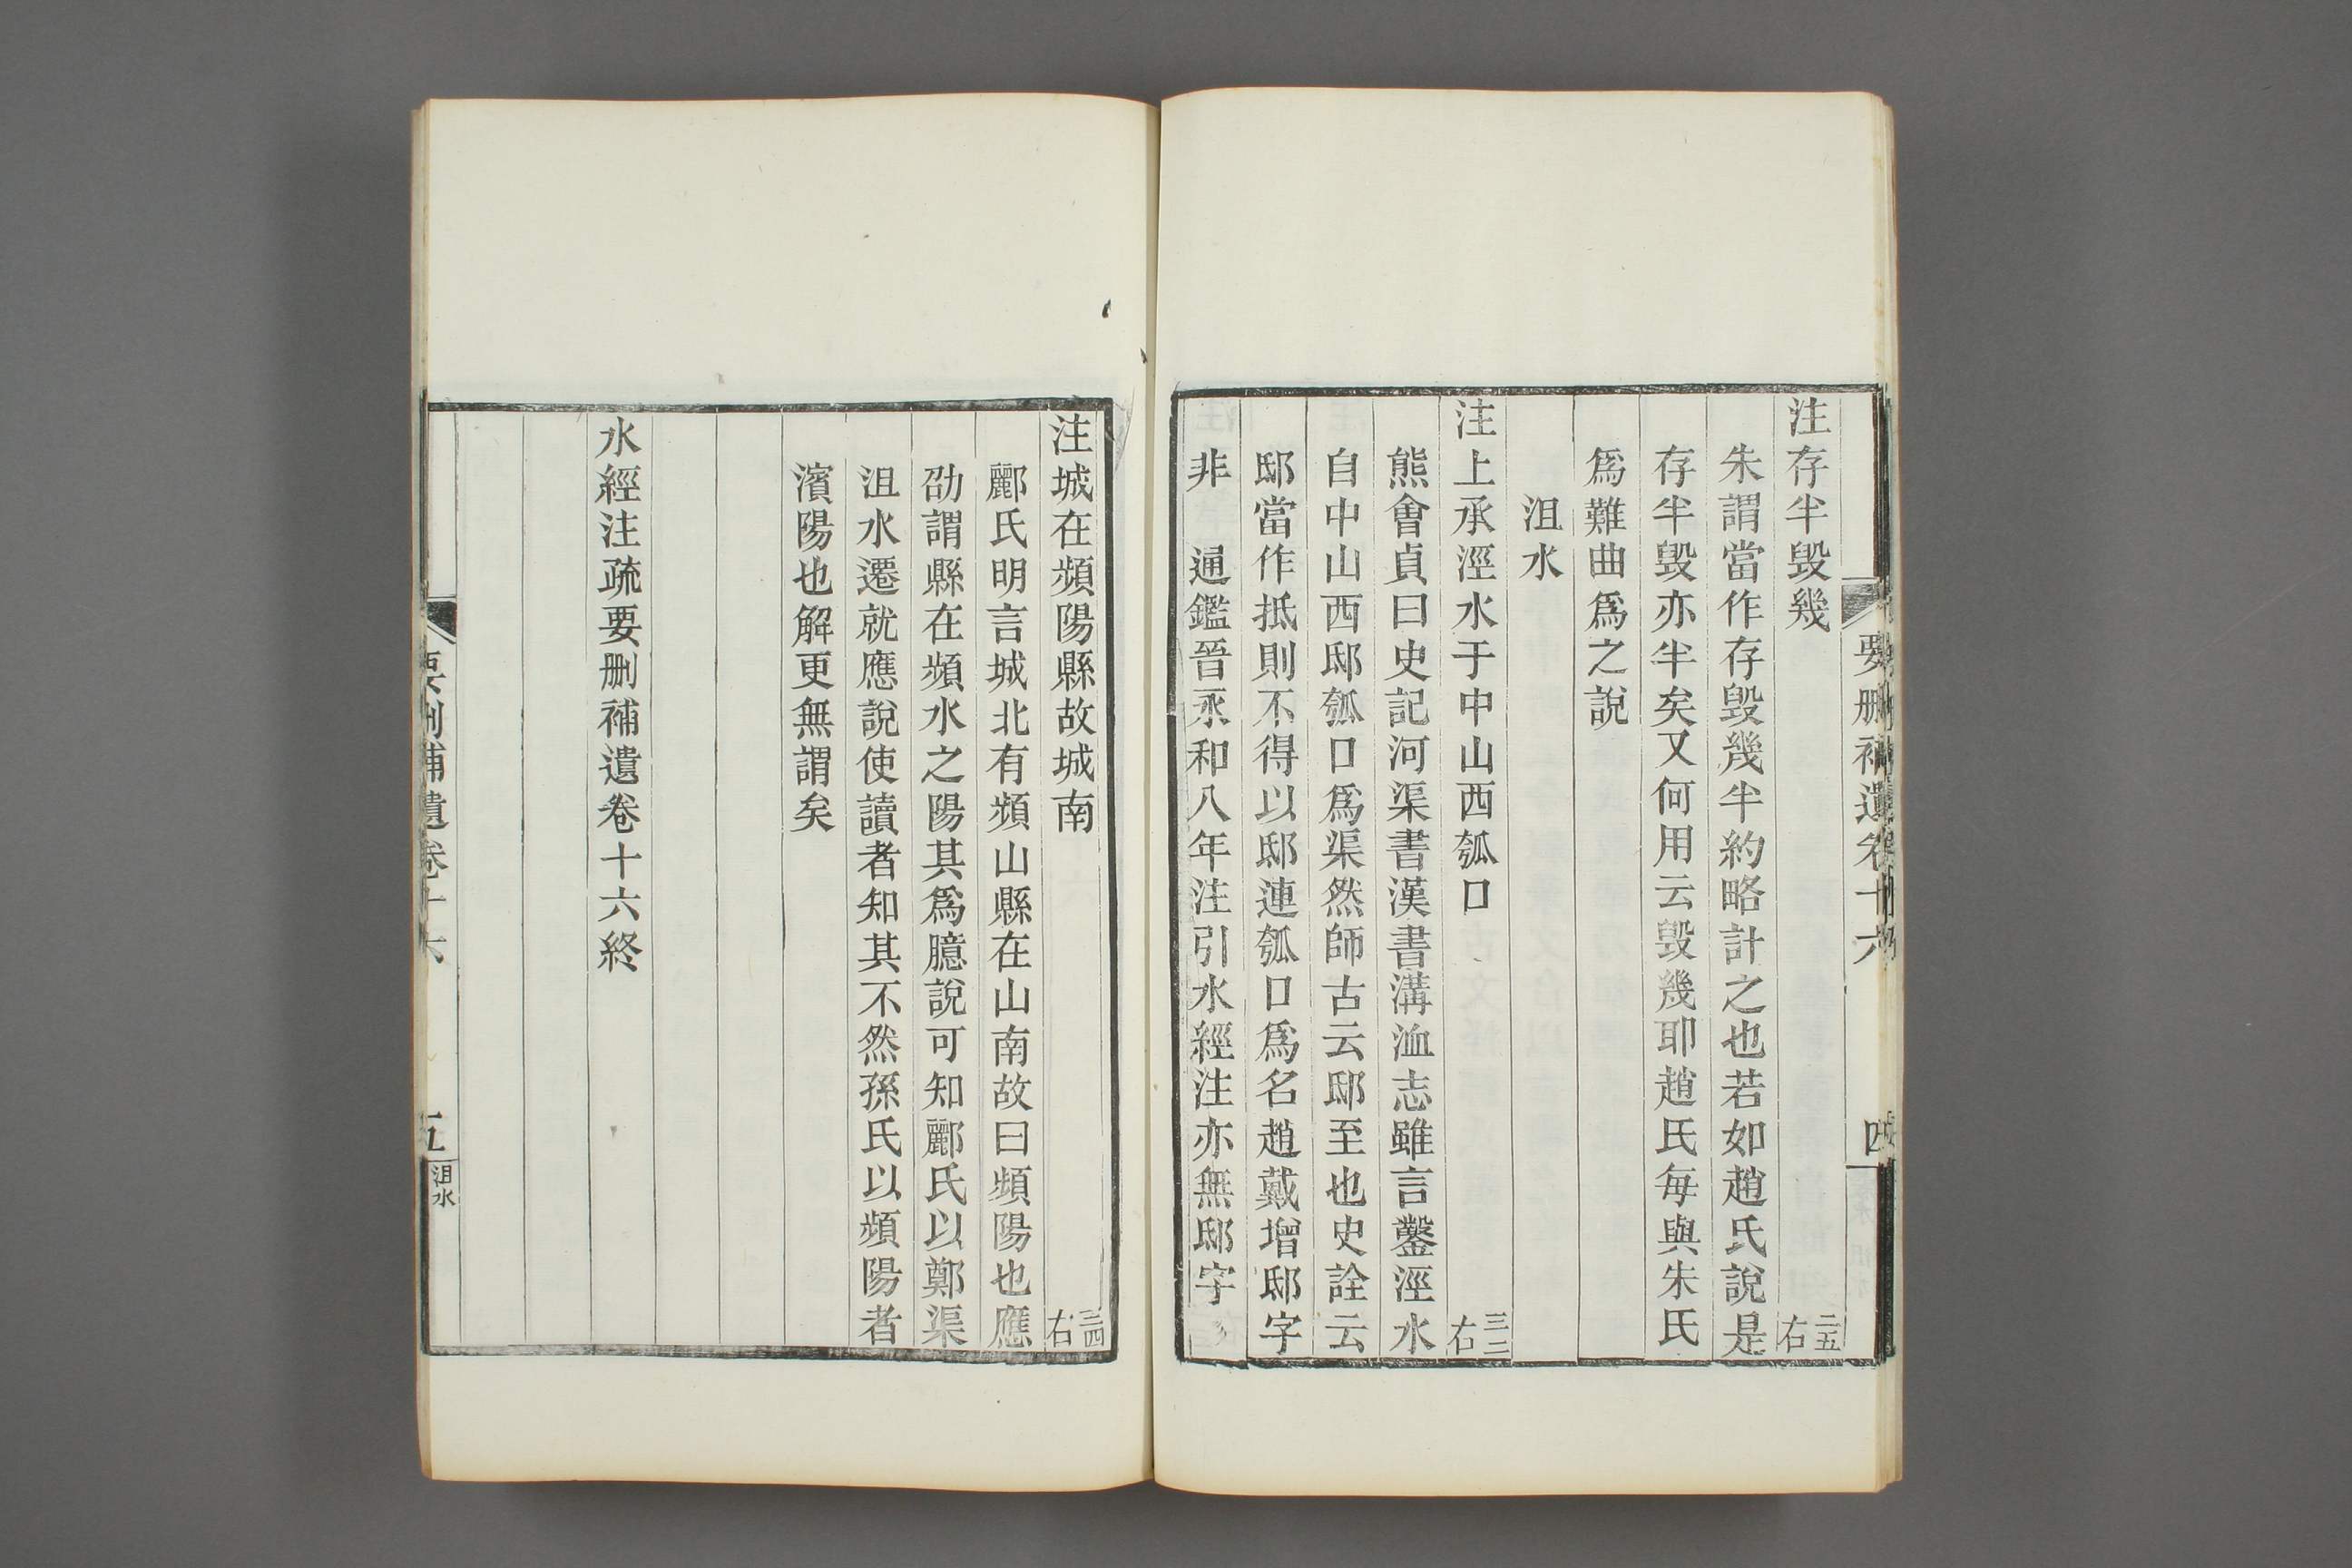 要刪補遺卷十六
四
注存半毀幾 二五右
朱謂當作存毀幾半約略計之也若如趙氏說是
存半毀亦半矣又何用云毀幾耶趙氏每與朱氏
爲難曲爲之說
沮水
注上承涇水于中山西瓠口 三二右
熊會貞曰史記河渠書漢書溝洫志雖言鑿涇水
自中山西邸瓠口爲渠然師古云邸至也史詮云
邸當作抵則不得以邸連瓠口爲名趙戴增邸字
非 通鑑晉永和八年注引水經注亦無邸字
注城在頻陽縣故城南 三四右
酈氏明言城北有頻山縣在山南故曰頻陽也應
劭謂縣在頻水之陽其爲臆說可知酈氏以鄭渠
沮水遷就應說使讀者知其不然孫氏以頻陽者
濱陽也解更無謂矣
水經注疏要刪補遺卷十六終
要刪補遺卷十六
五
沮水